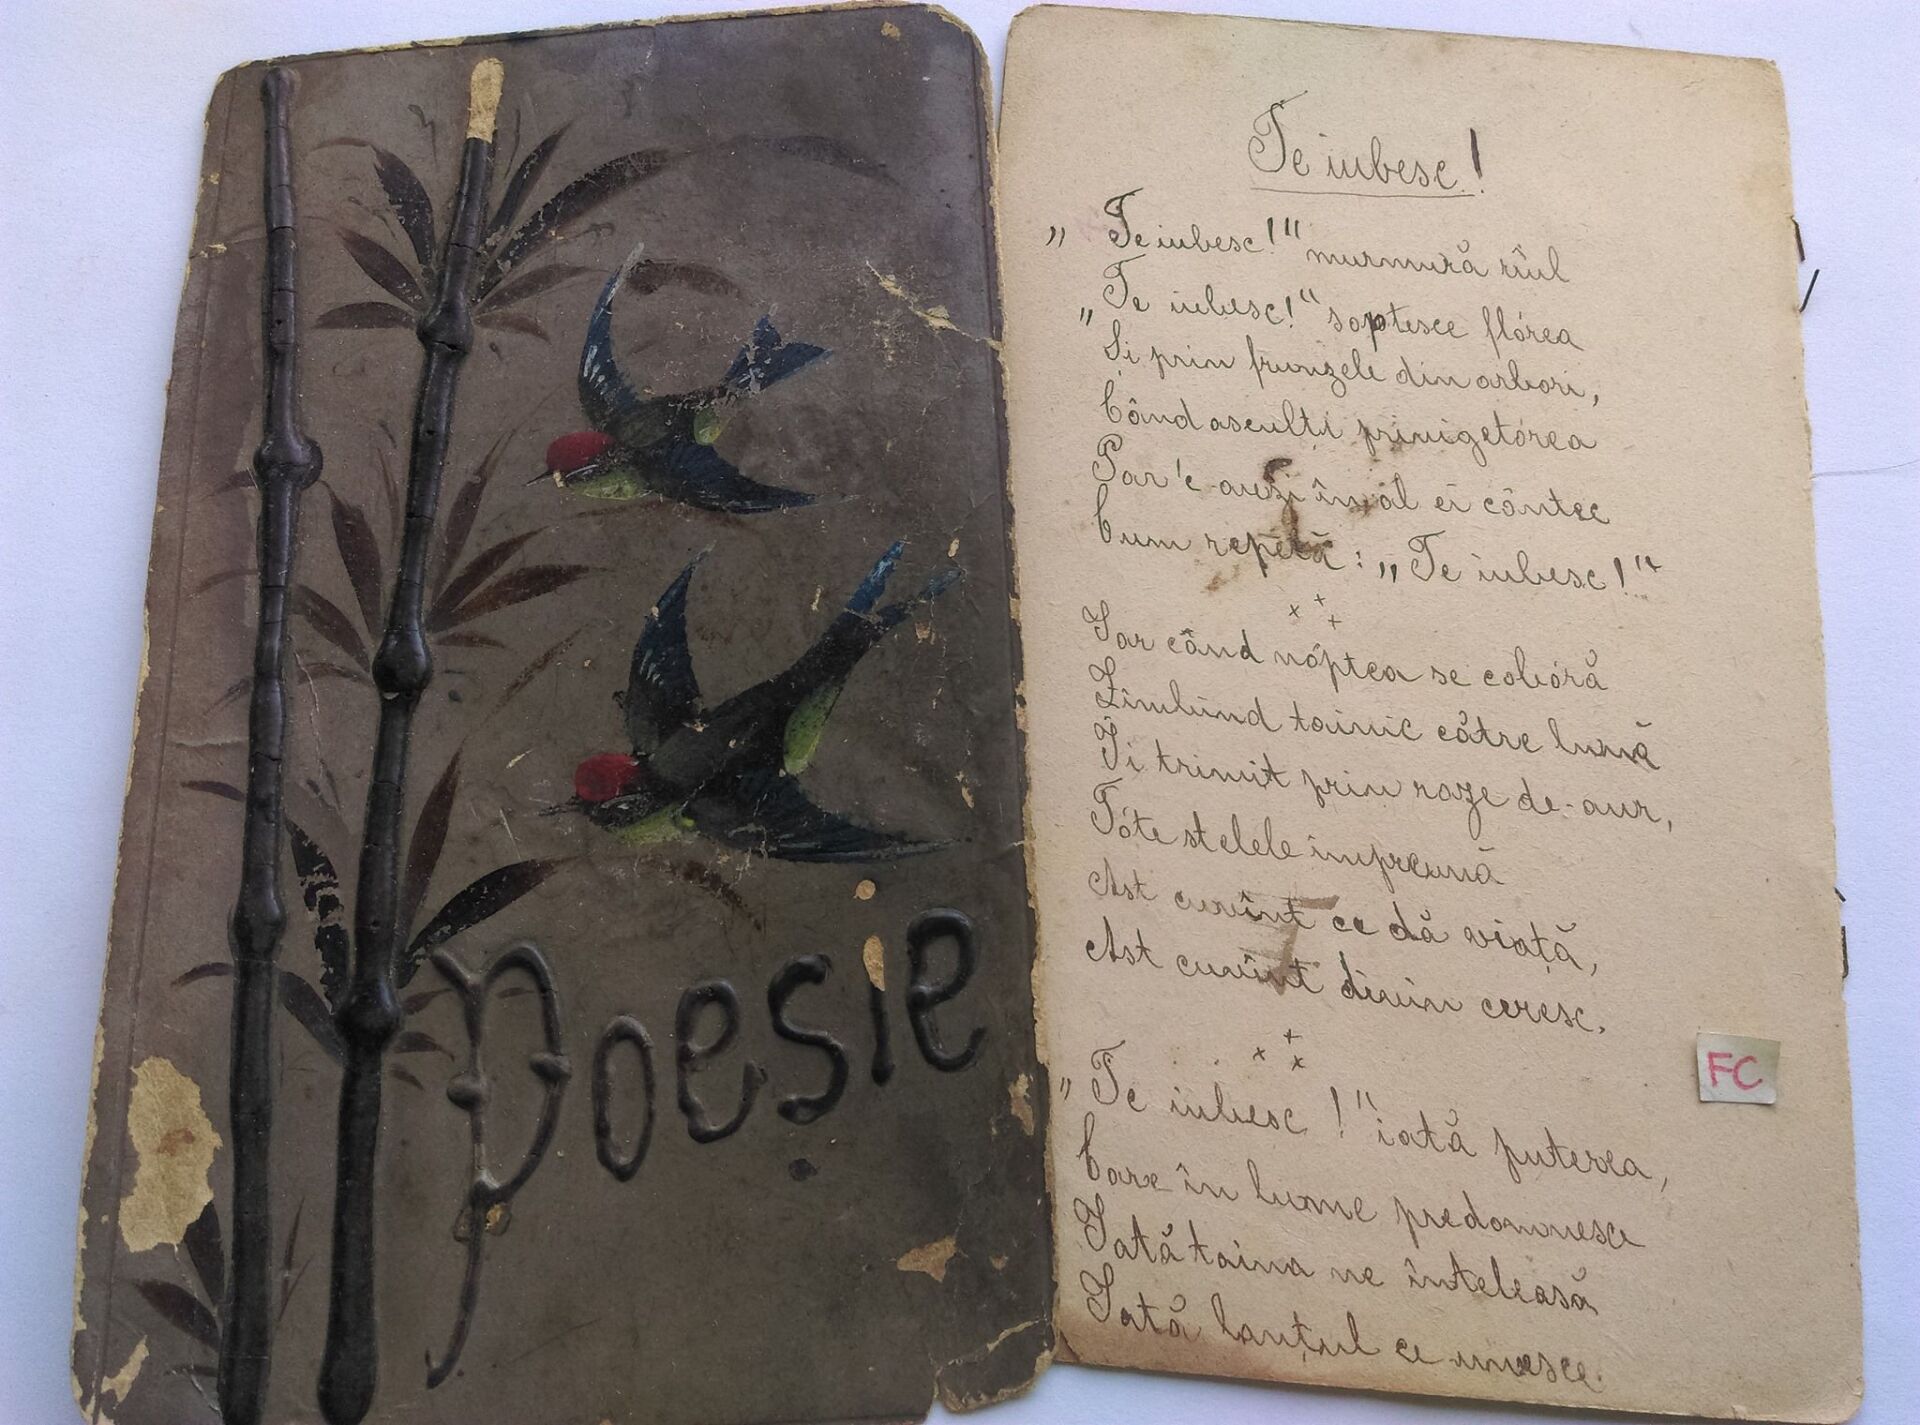 Poesie
Te iubesc!
„Te iubesc!" murmură rîul
„Te iubesc!" soptesce flórea
Și prin frunzele din arbori,
Când asculți privigetórea
Par'c-auzi în al ei cântec
Cum repetă: „Te iubesc!"
Iar când nóptea se cobóră
Zîmbind tainic către lună
Ĭi trimit prin raze de-aur,
Tóte stelele împreună
Ast cuvînt ce dă viață,
Ast cuvînt divin ceresc.
„Te iubesc!" iată puterea,
Care în lume predomnesce
Iată taina ne înteleasă
Iată lanțul ce unesce.
FC